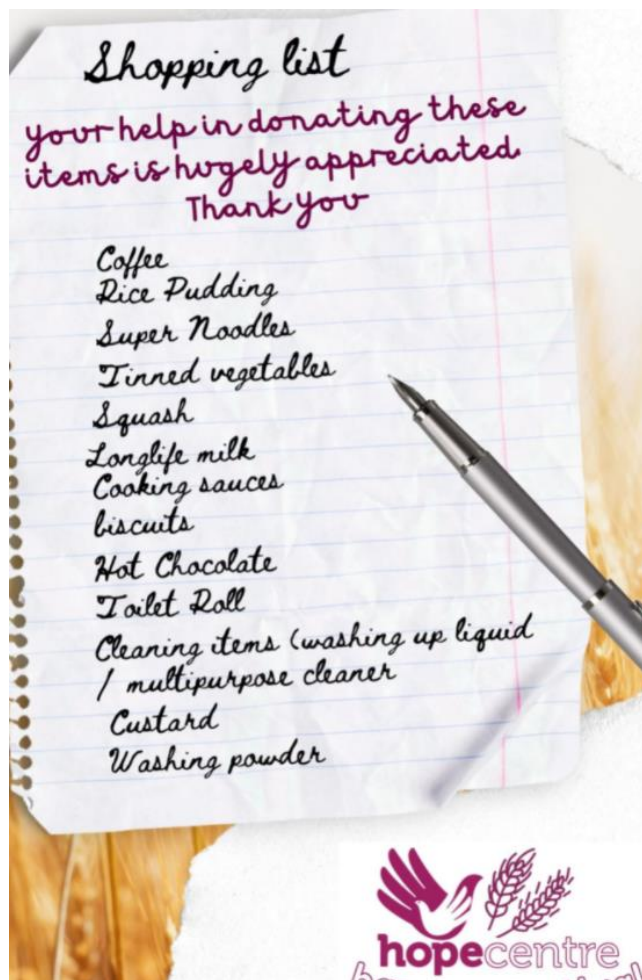 Shopping list
your help in donating these
items is hugely appreciated.
Thank you
Coffee
Rice Pudding
Super Noodles
Tinned vegetables
Squash
Longlife milk
Cooking sauces
biscuits
Hot Chocolate
Toilet Roll
Cleaning items (washing up liquid
/ multipurpose cleaner
Custard
Washing powder
hopecentre